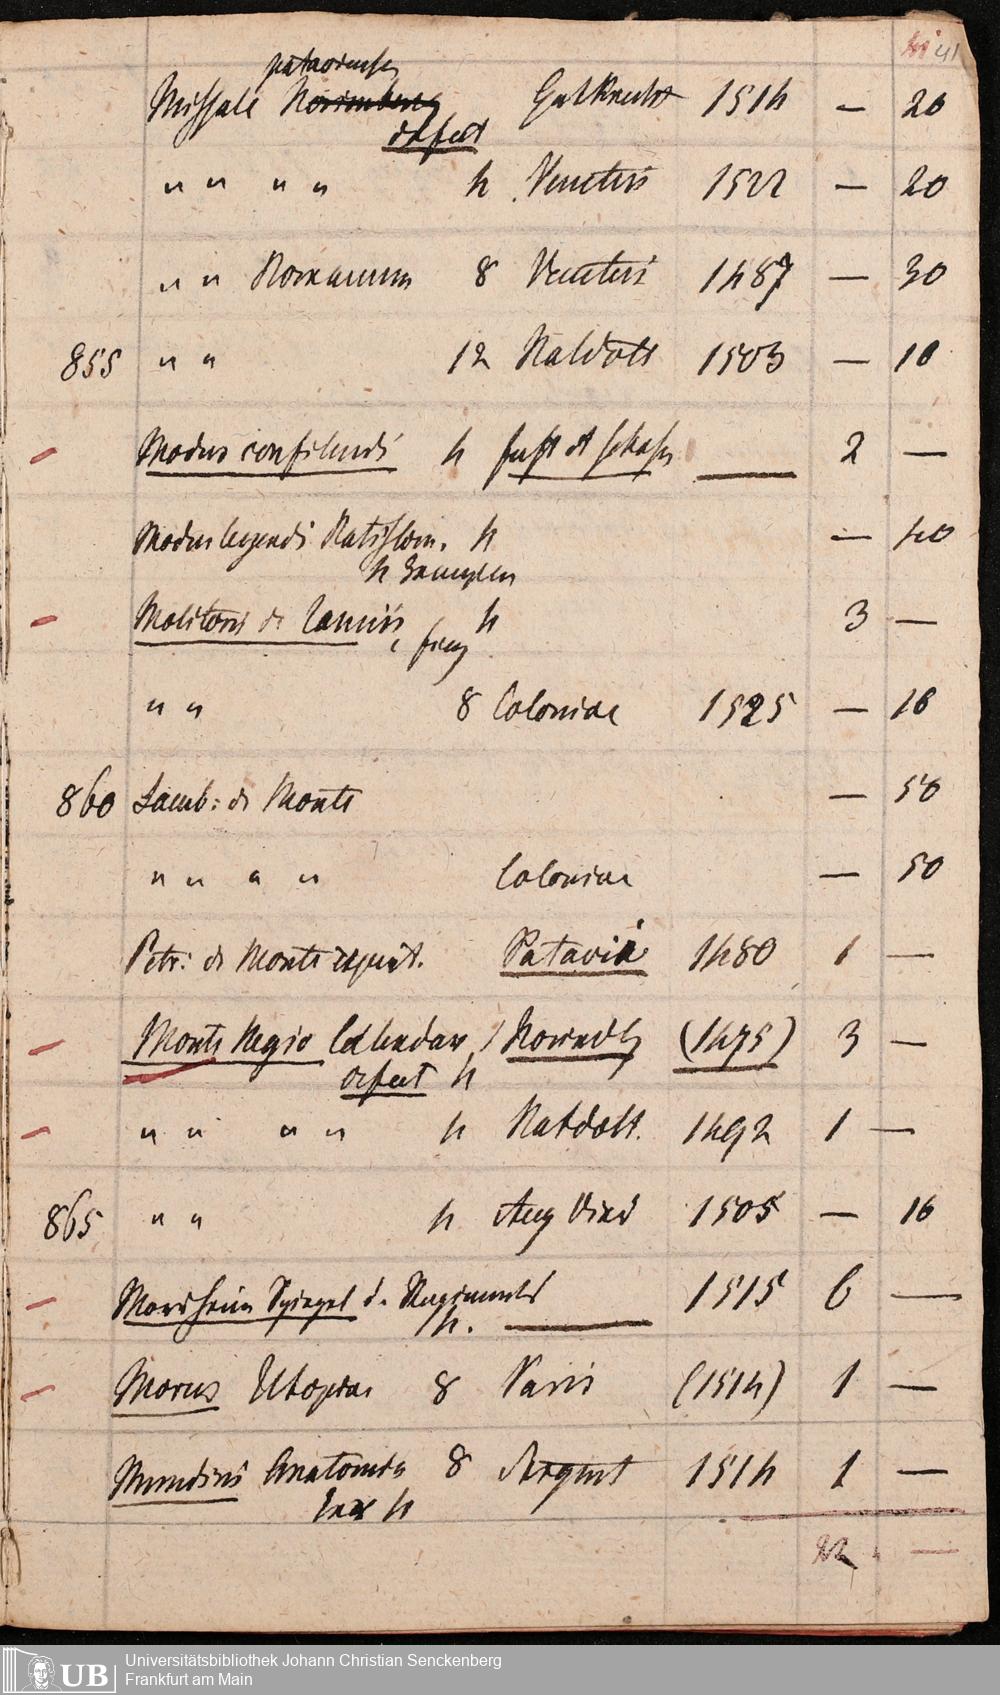 41
pataviense
Missale Norimberg Gutknecht 1514 — 20
defect
" " " " 4 Venetiis 1522 — 20
" " Romanum 8 Venetiis 1487 — 30
855 " " 12 Ratdolt 1503 — 16
Modus confitendi 4 fust et schofer — 2 —
Modus legendi 4 — 40
4 Exemplar
Molitoris de Lamiis 4 3 —
" " 8 Coloniae 1525 — 16
860 Lamb: de Monte — 50
" " " " Coloniae — 50
Petr: de Monte repert. Patavia 1480 1 —
Monte Regio Calendar (1475) 3 —
defect 4
" " " " 4 Ratdolt. 1492 1 —
865 " " 4 Aug Vind 1505 — 16
Morsheim Spiegel d. Regiments 1515 6 —
4. —
Morus Utopia 8 Paris (1514) 1 —
Mundini Anatomia 8 Argent 1514 1 —
4
22 —
UB
Universitätsbibliothek Johann Christian Senckenberg
Frankfurt am Main